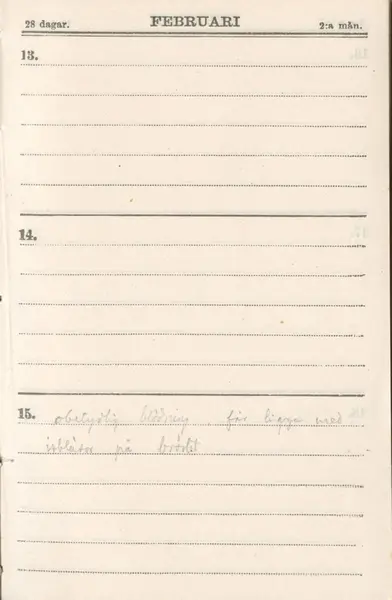 28 dagar. FEBRUARI 2:a mån.
13.
14.
15. obetydlig blödning, får ligga med
isblåsa på bröstet